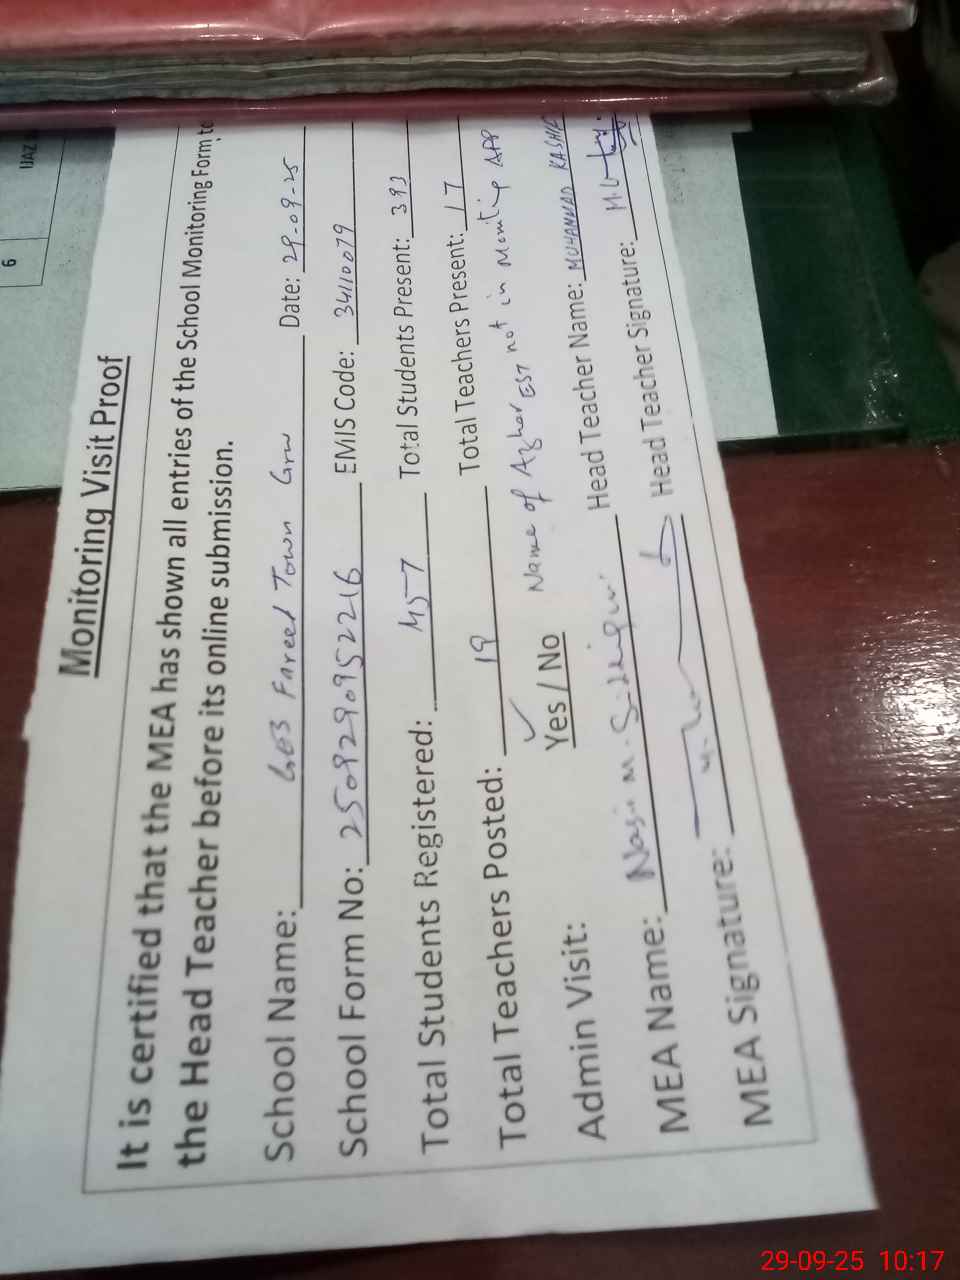 Monitoring Visit Proof
It is certified that the MEA has shown all entries of the School Monitoring Form to
the Head Teacher before its online submission.
School Name: Fareed Town Grw Date: 29-09-25
School Form No: 2509290952216 EMIS Code: 34110079
Total Students Registered: 457 Total Students Present: 393
Total Teachers Posted: 19 Total Teachers Present: 17
Admin Visit: Yes / No Name of Azhar EST not in APP
MEA Name: Head Teacher Name: MUHAMMAD KASHIF
MEA Signature: Head Teacher Signature:
6
IJAZ
29-09-25 10:17